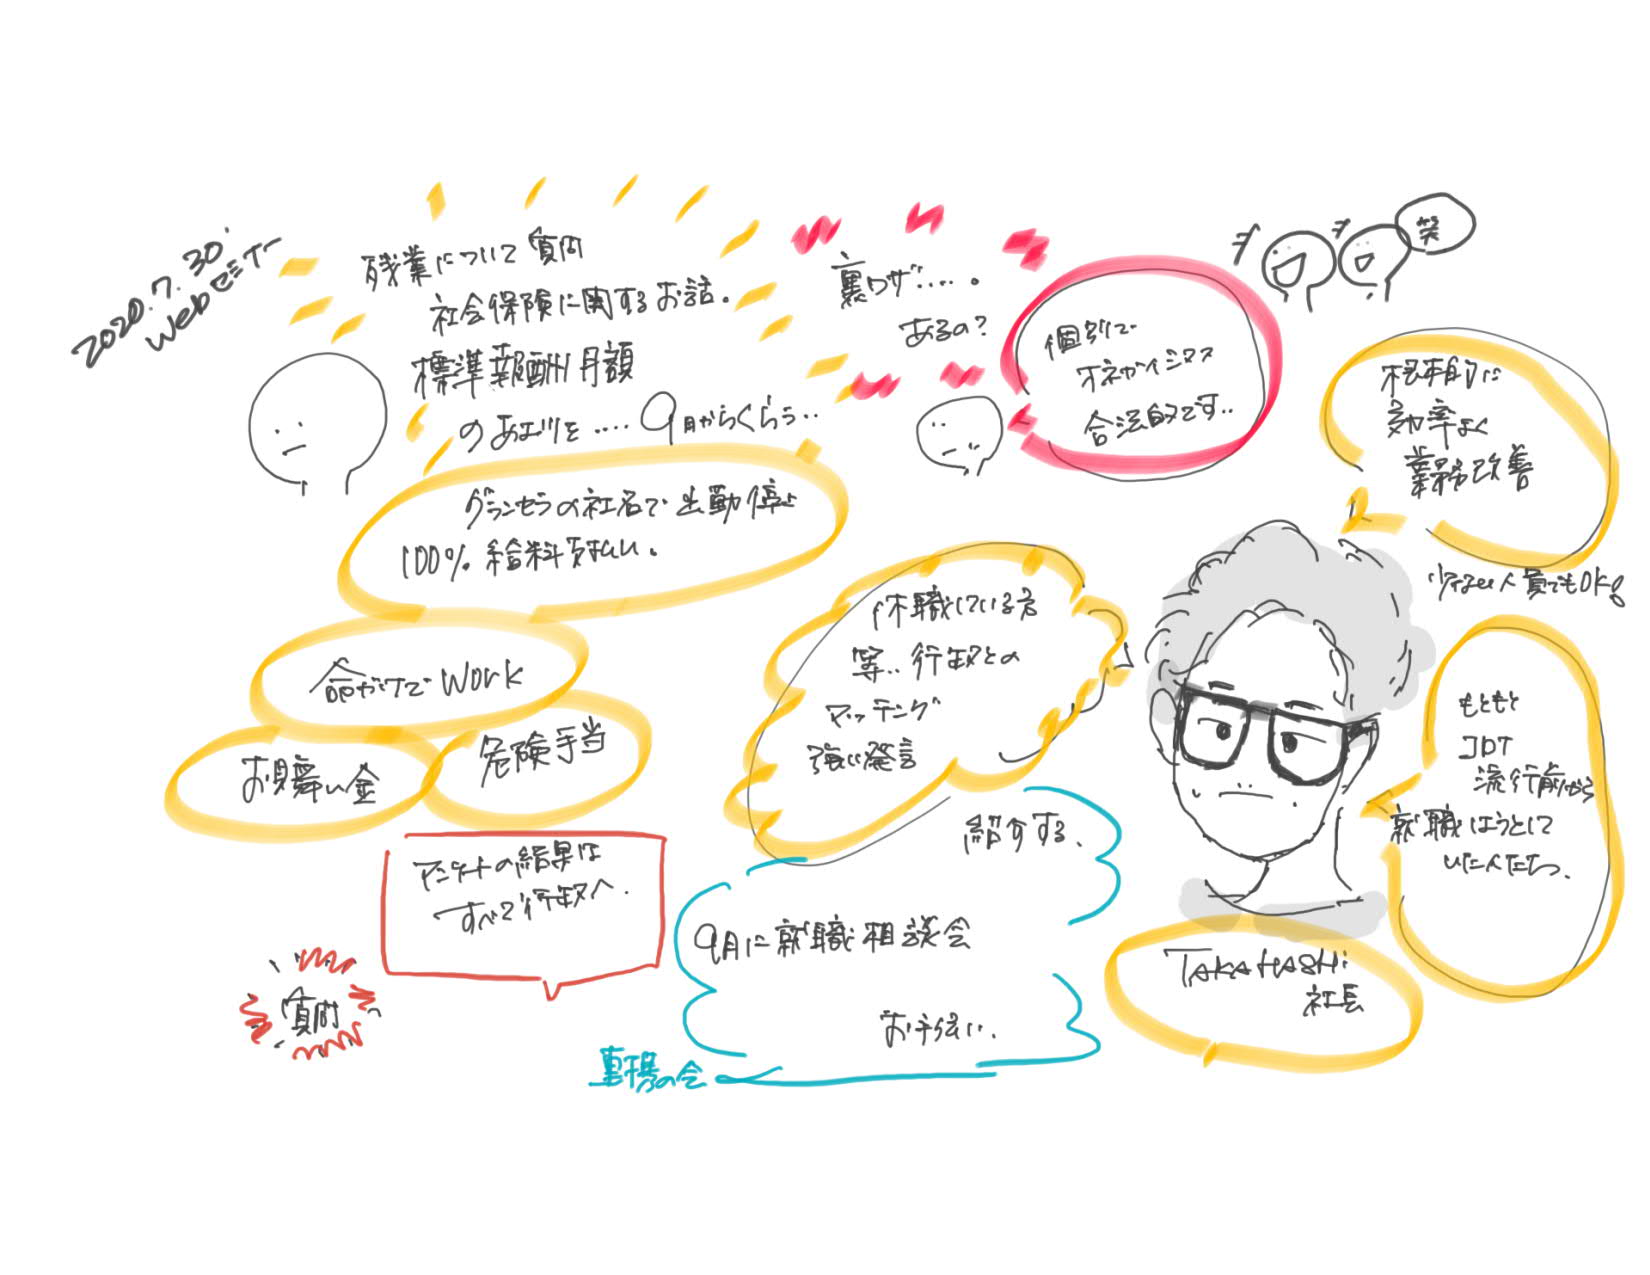 2020.7.30.
Webセミナー
残業について質問
社会保険に関するお話。
標準報酬月額
の あエツを .... 9月からくらう..
裏ワザ....。
あるの?
個別で
オネガイシマス
合法的です..
笑
根本的に
効率よく
業務改善
少ない人員でもOK!
グランセラの社名で出勤停止
100% 給料支払い。
命がけでWork
お見舞い金
危険手当
休職している方
等.. 行政との
マッチング
強い発言
もともと
流行前から
就職しようとして
いた人たち。
紹介する.
アンケートの結果は
すべて行政へ.
9月に就職相談会
お手伝い.
TAKAHASHi
社長
質問
の会